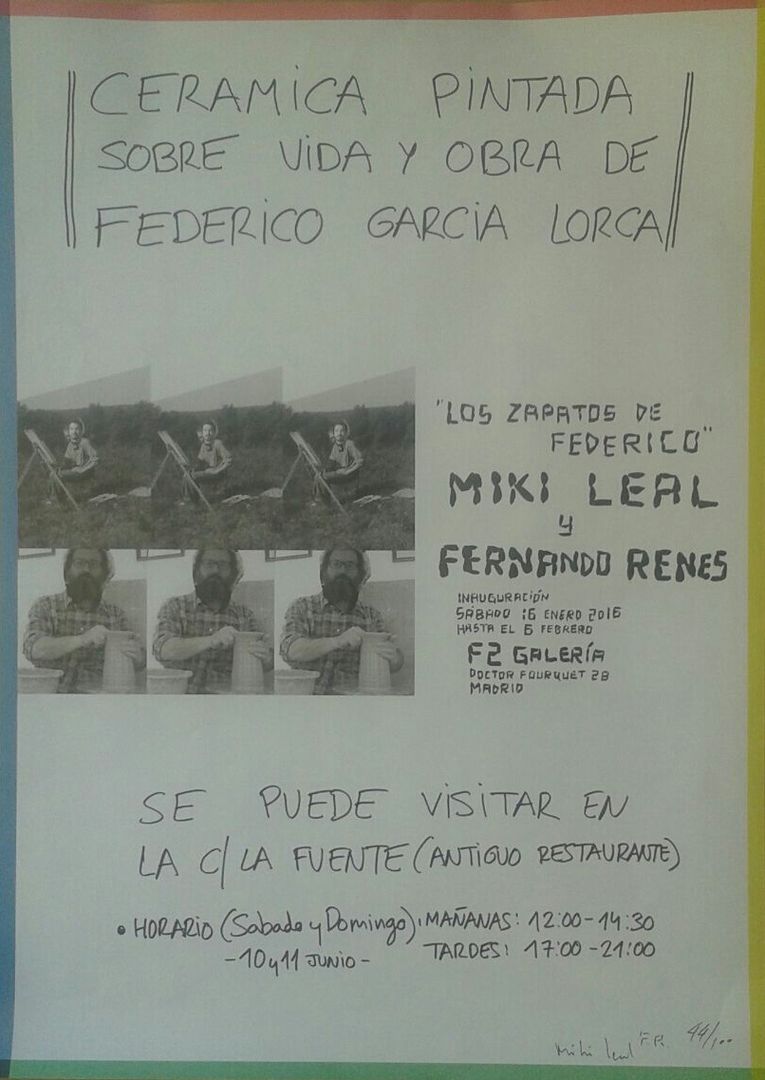 CERAMICA PINTADA
SOBRE VIDA Y OBRA DE
FEDERICO GARCIA LORCA
"LOS ZAPATOS DE
FEDERICO"
MIKI LEAL
y
FERNANDO RENES
INAUGURACIÓN
SÁBADO 16 ENERO 2016
HASTA EL 6 FEBRERO
F2 GALERÍA
DOCTOR FOURQUET 28
MADRID
SE PUEDE VISITAR EN
LA C/ LA FUENTE (ANTIGUO RESTAURANTE)
• HORARIO (Sabado y Domingo): MAÑANAS: 12:00-14:30
-10 y 11 JUNIO- TARDES: 17:00-21:00
Miki Leal F.R. 44/100